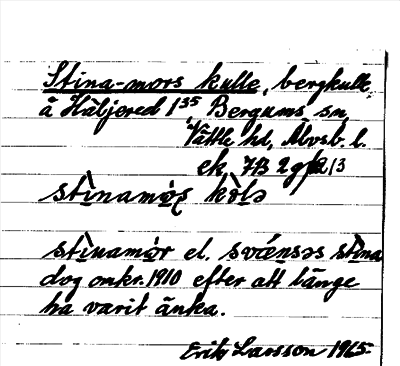 Stina-mors kulle, bergkulle
å Häljered 1³⁵, Bergums sn,
Vättle hd, Älvsb. l.
ek. 7B 2g 13
stìnamọṣ kòlə
stìnamọr el. svǽnsəs stìna
dog omkr. 1910 efter att länge
ha varit änka.
Erik Larsson 1965